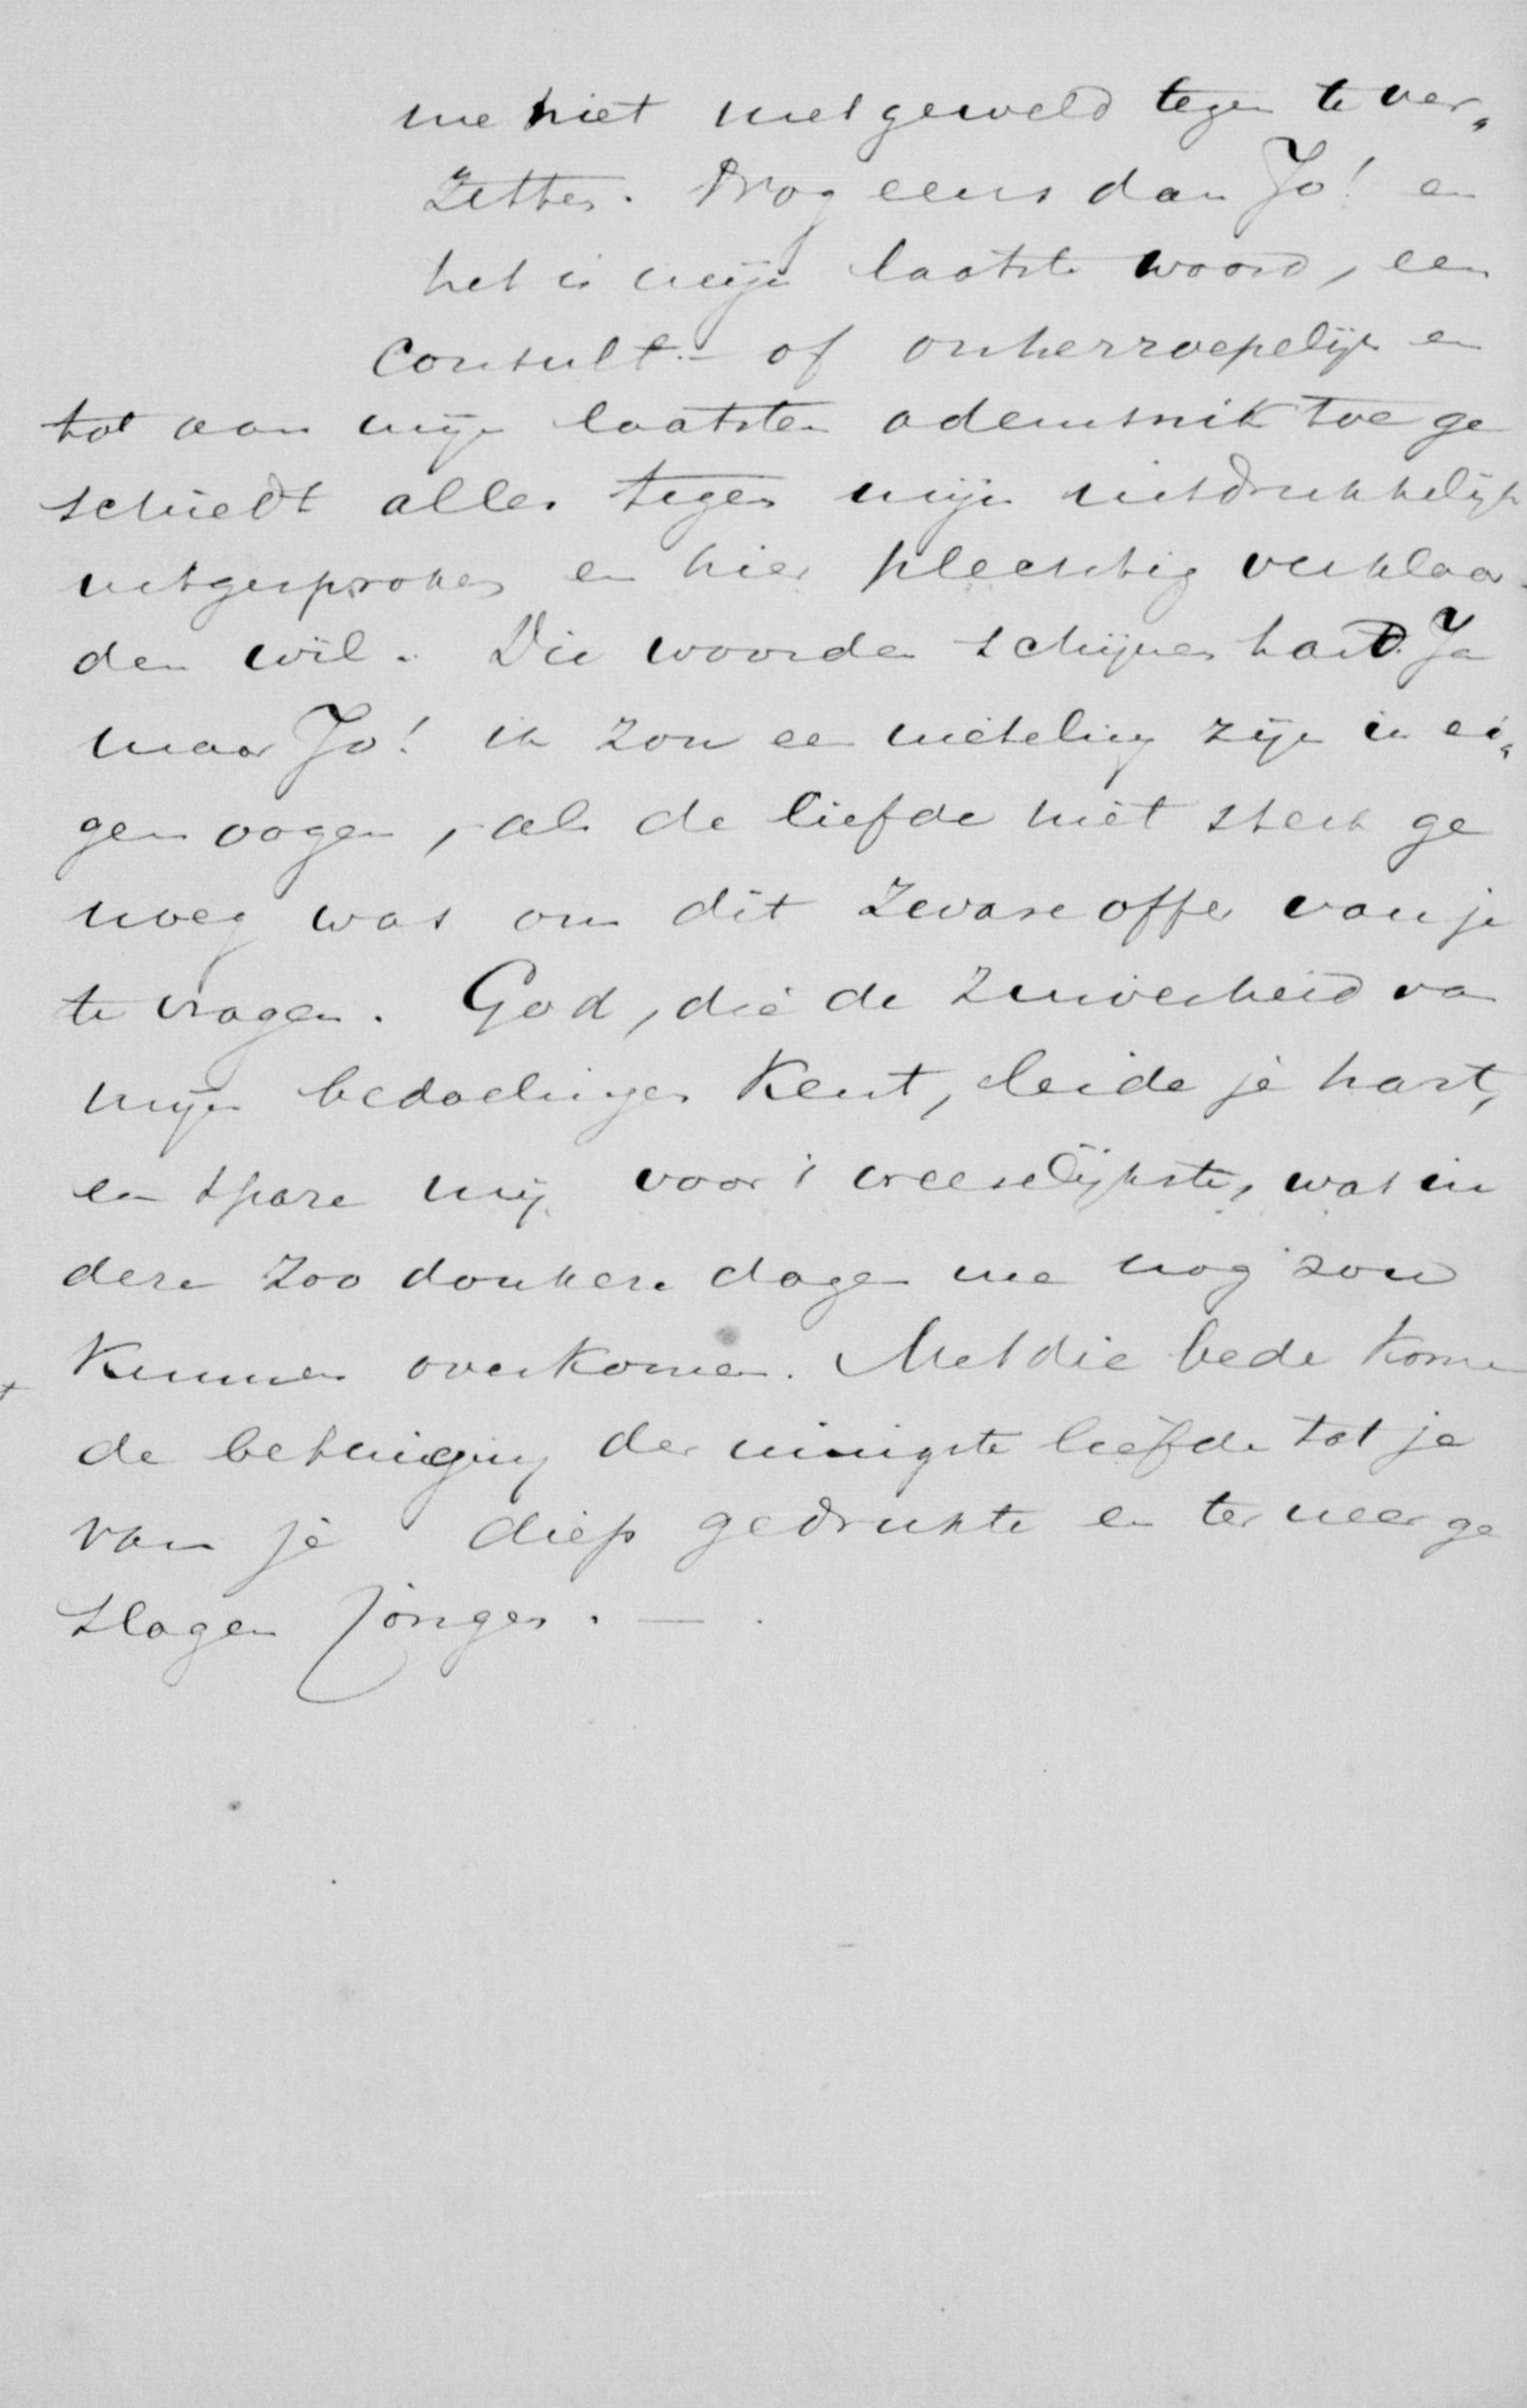 me niet met geweld tegen te ver„
zetten. Nog eens dan Jo! en
het is mijn laatste woord, een
consult – of onherroepelijk en
tot aan mijn laatsten ademsnik toe ge
schiedt alles tegen mijn uitdrukkelijk
uitgesproken en hier plechtig verklaar
den wil. Die woorden schijnen hard. Ja
maar Jo! ik zou een nieteling zijn in ei„
gen oogen, als de liefde niet sterk ge
noeg was om dit zware offer van je
te vragen. God, die de zuiverheid van
mijn bedoelingen kent, leide je hart,
en spare mij voor 't vreeselijkste, wat in
deze zoo donkere dagen me nog zou
kunnen overkomen. Met die bede kome
de betuiging der innigste liefde tot je
van je diep gedrukte en ter neer ge
slagen jongen. — .